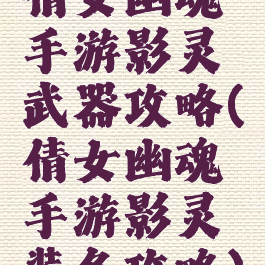 倩女幽魂
手游影灵
武器攻略(
倩女幽魂
手游影灵
装备攻略)